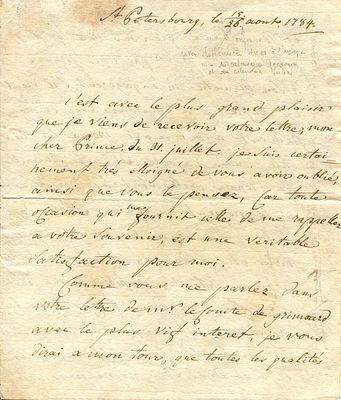 St Petersbourg, le 15/26 aoust 1784.
c'est avec le plus grand plaisir
que je viens de recevoir votre lettre, mon
cher Prince, du 31. juillet je suis certai
nement trés eloigné de vous avoir oublié,
ainsi que vous le pensez, Car toute
ocasion qui me fournit celles de me rappeller
a votre Souvenir, est une veritable
satisfaction pour moi.
Comme vous me parlez dans
votre lettre de mr le Comte de grimoard
avec le plus vif interet, je vous
dirai a mon tour, que toutes les qualités